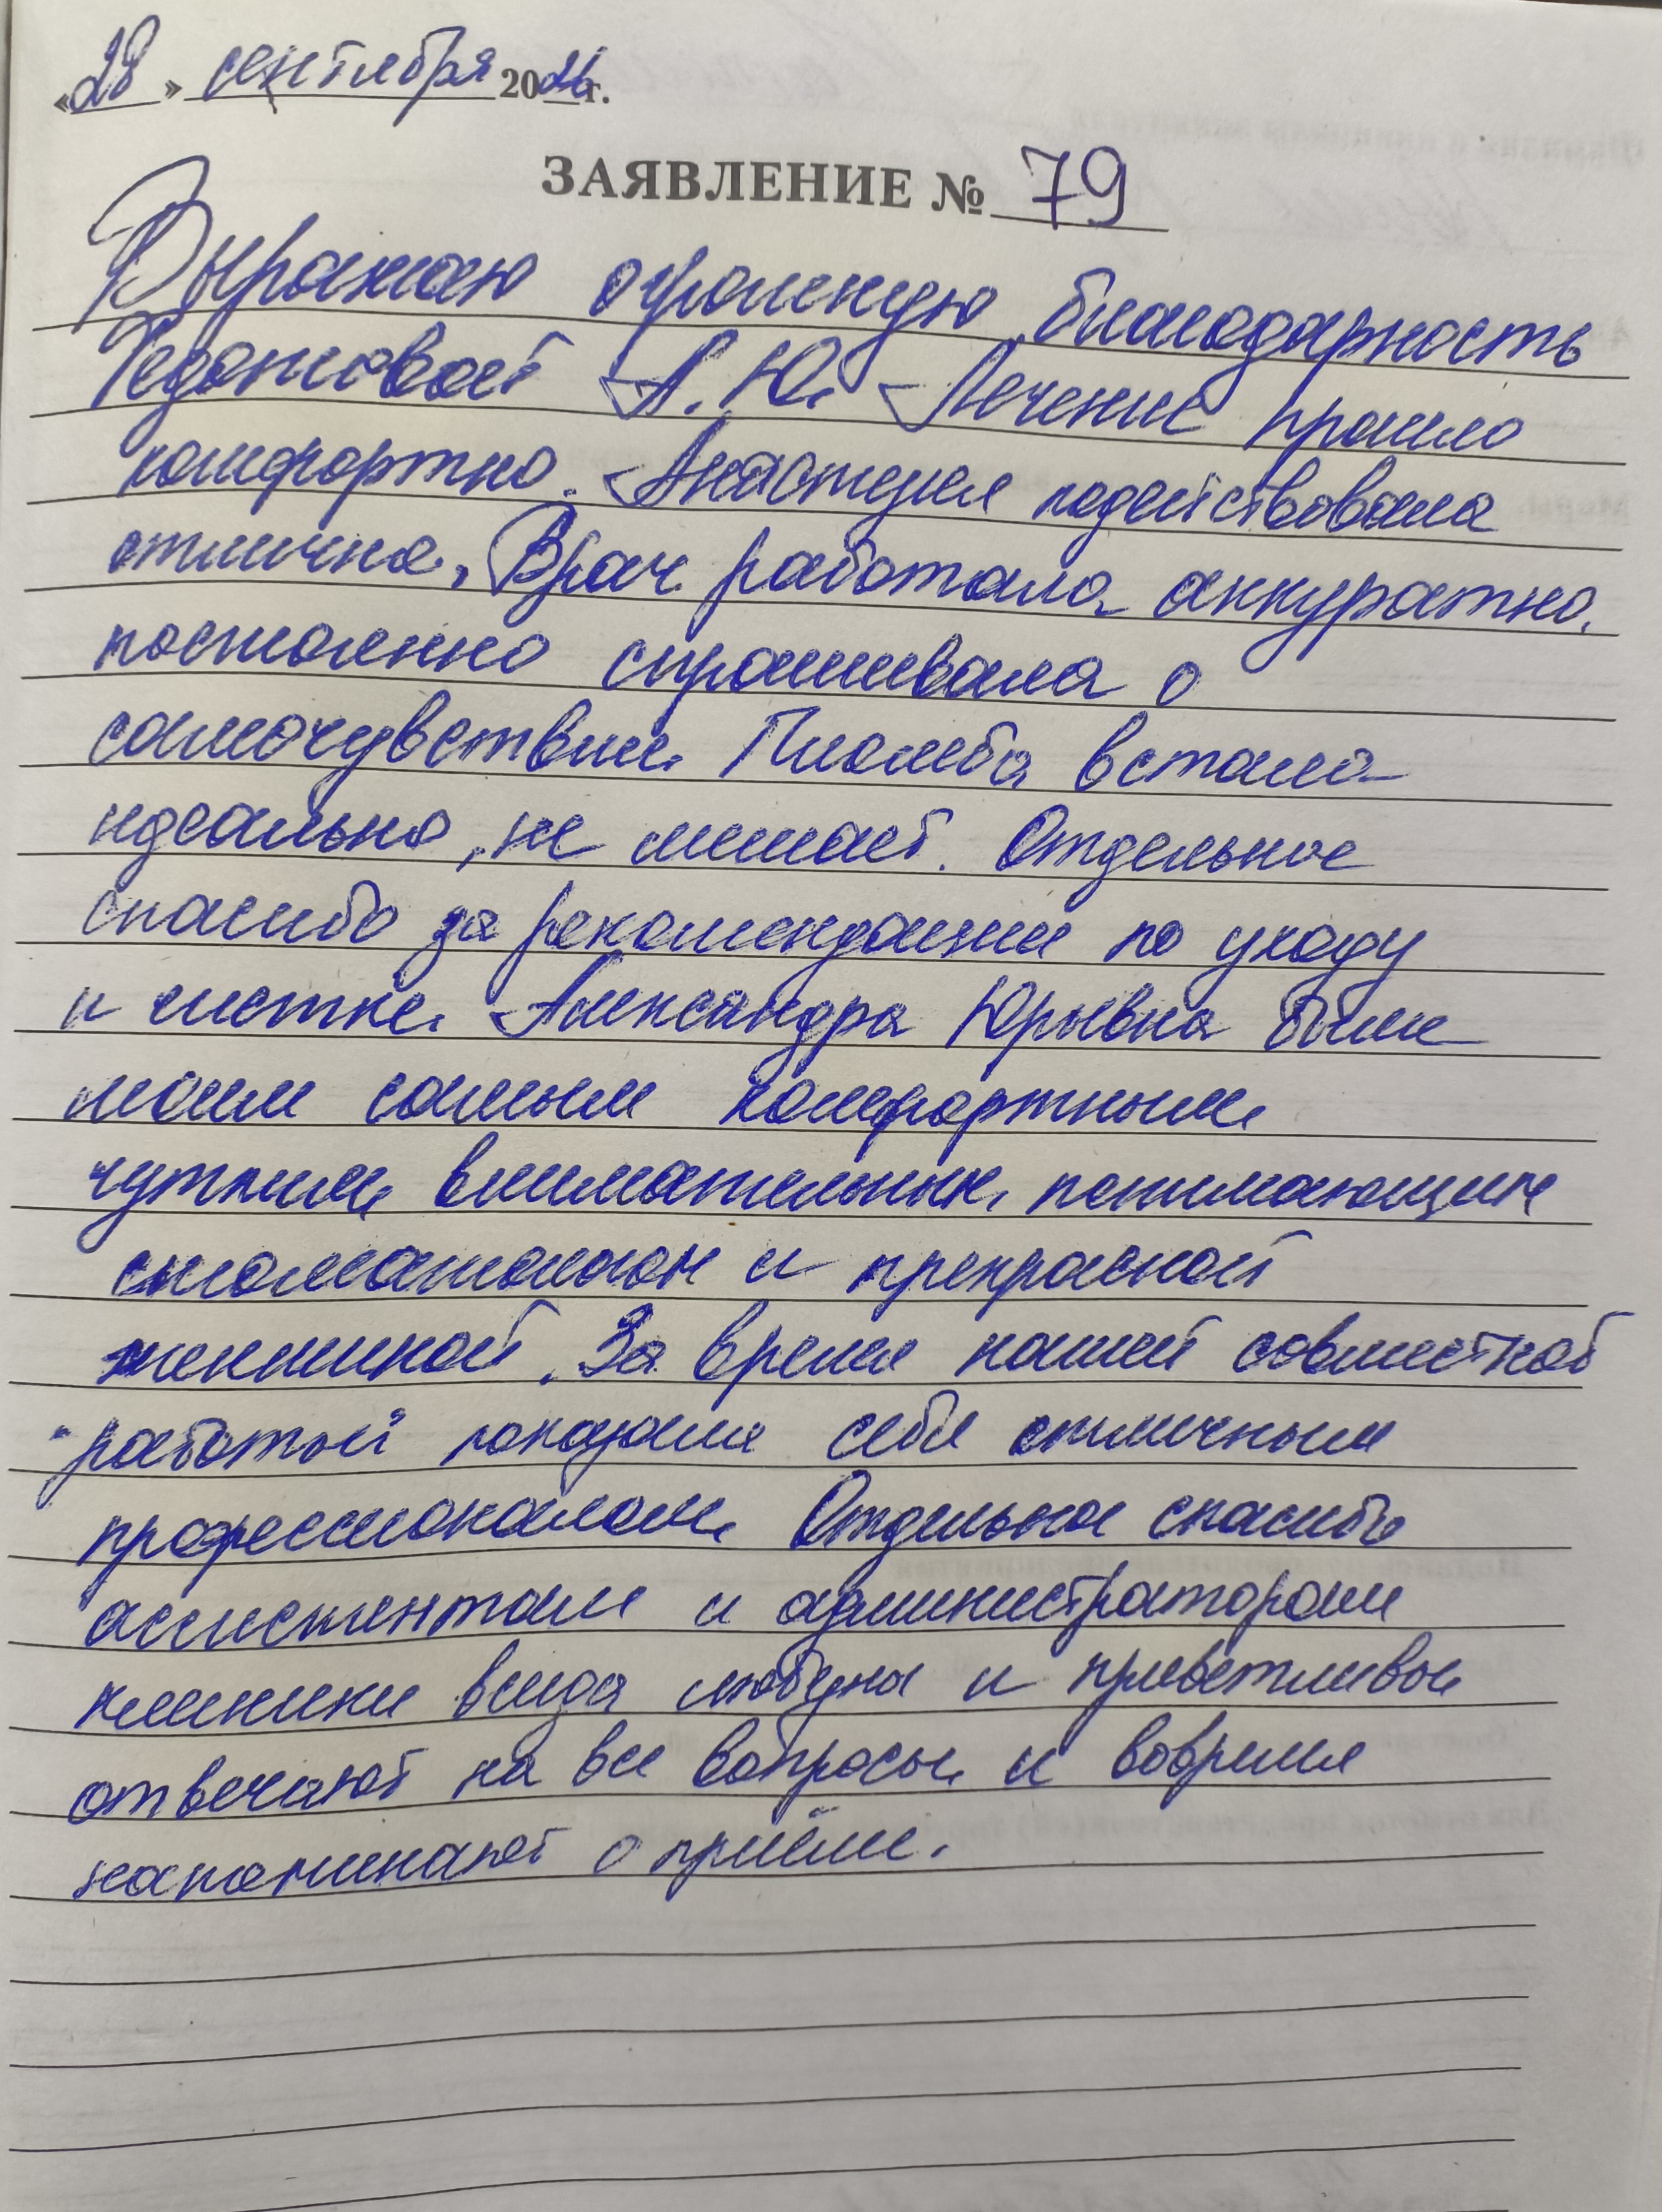 «28» сентября 2026г.
ЗАЯВЛЕНИЕ № 79
Выражаю огромную благодарность
А.Ю. Лечение прошло
комфортно. Анастезия подействовала
отлично. Врач работала аккуратно,
постоянно спрашивала о
самочувствии. Пломба встала
идеально, не мешает. Отдельное
спасибо за рекомендации по уходу
и чистке. Александра Юрьевна были
моим самым комфортным
чутким внимательным, понимающим
стоматологом и прекрасной
женшиной. За время нашей совместной
работый показали себя отличным
профессионалом. Отдельное спасибо
ассистентам и администраторам
клиники всегда любезны и приветливы
отвечают на все вопросы и вовремя
напоминают о приёме.